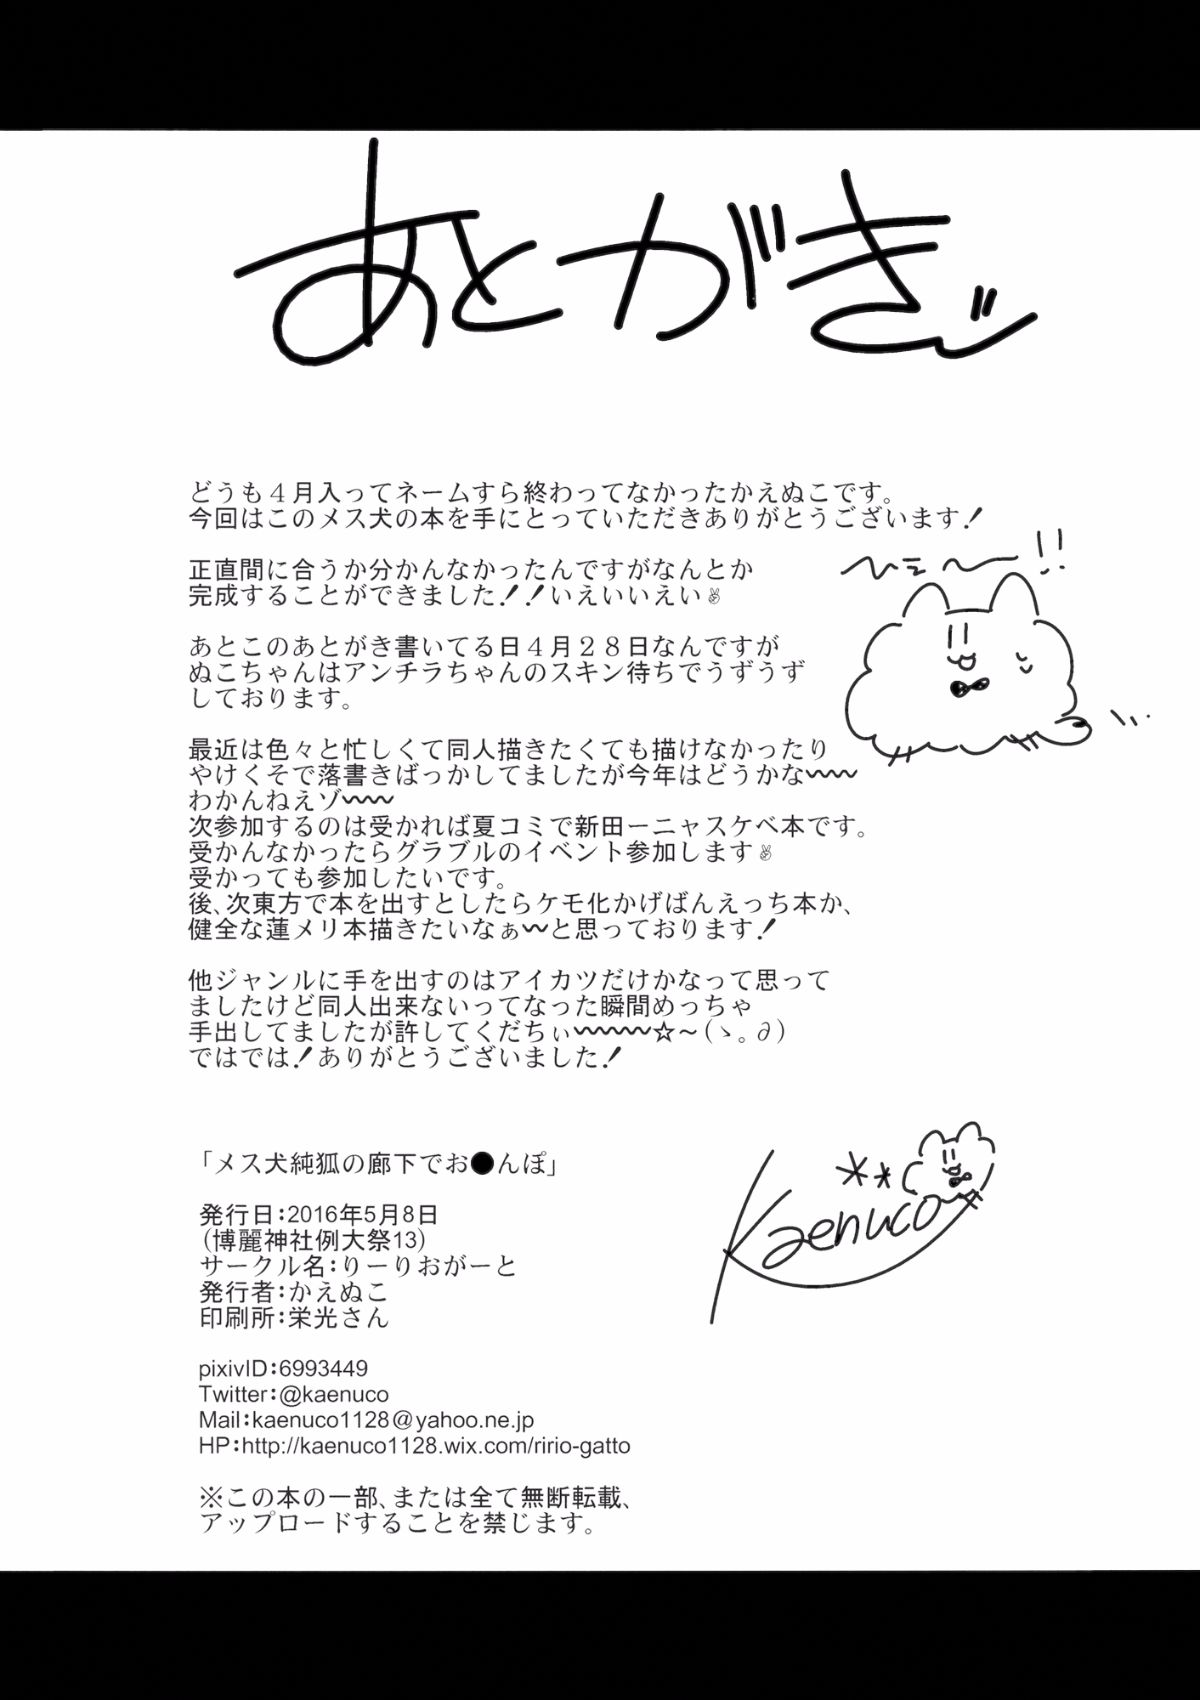 あとがきッ
どうも４月入ってネームすら終わってなかったかえぬこです。
今回はこのメス犬の本を手にとっていただきありがとうございます！
正直間に合うか分かんなかったんですがなんとか
完成することができました！！いえいいえい✌
あとこのあとがき書いてる日４月２８日なんですが
ぬこちゃんはアンチラちゃんのスキン待ちでうずうず
しております。
最近は色々と忙しくて同人描きたくても描けなかったり
やけくそで落書きばっかしてましたが今年はどうかな〰〰
わかんねえゾ〰〰
次参加するのは受かれば夏コミで新田ーニャスケベ本です。
受かんなかったらグラブルのイベント参加します✌
受かっても参加したいです。
後、次東方で本を出すとしたらケモ化かげばんえっち本か、
健全な蓮メリ本描きたいなぁ〰と思っております！
他ジャンルに手を出すのはアイカツだけかなって思って
ましたけど同人出来ないってなった瞬間めっちゃ
手出してましたが許してくだちぃ〰〰〰☆～(ゝ。∂)
ではでは！ありがとうございました！
「メス犬純狐の廊下でお●んぽ」
Kaenuco
発行日：2016年5月8日
（博麗神社例大祭13）
サークル名：りーりおがーと
発行者：かえぬこ
印刷所：栄光さん
pixivID：6993449
Twitter：@kaenuco
Mail：kaenuco1128@yahoo.ne.jp
HP：http://kaenuco1128.wix.com/ririo-gatto
※この本の一部、または全て無断転載、
アップロードすることを禁じます。